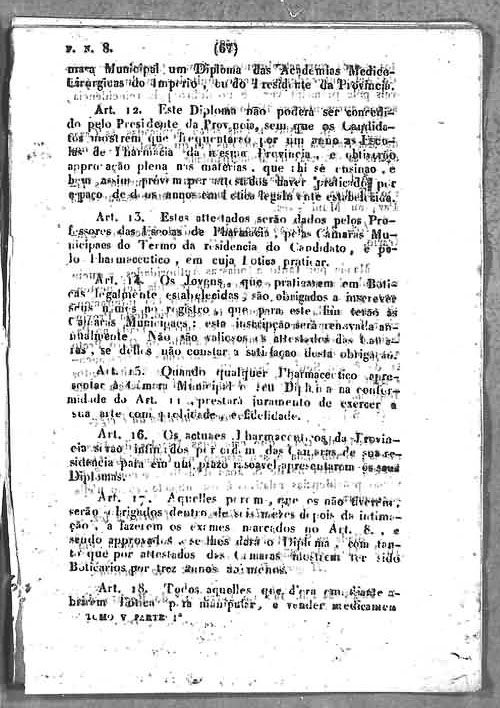 P. N. 8. (67)
mara Municipal um Diploma das Academias Medico-
Cirurgicas do Imperio, ou do Presidente da Provincia.
Art. 12. Este Diploma não poderá ser concedi-
do pelo Presidente da Provincia, sem que os Candida-
tos mostrem que frequentarão por um anno as Esco-
las de Pharmacia da mesma Provincia, e obtiverão
approvação plena nas materias, que ahi se ensinão, e
bem assim provem por attestados haver praticado por
espaço de dois annos em Botica legalmente estabelecida.
Art. 13. Estes attestados serão dados pelos Pro-
fessores das Escolas de Pharmacia, pelas Câmaras Mu-
nicipaes do Termo da residencia do Candidato, e pe-
lo Pharmaceutico, em cuja Botica praticar.
Art. 14. Os Jovens, que praticarem em Boti-
cas legalmente estabelecidas, são obrigados a inscrever
seus nomes no registro, que para este fim terão as
Câmaras Municipaes: esta inscripção será renovada an-
nualmente. Não são valiosos os attestados das Cama-
ras, se delles não constar a satisfação desta obrigação.
Art. 15. Quando qualquer Pharmaceutico apre-
sentar á Câmara Municipal o seu Diploma na confor-
midade do Art. 11, prestará juramento de exercer a
sua arte com e fidelidade.
Art. 16. Os actuaes Pharmaceuticos da Provin-
cia serão intimados por ordem das Camaras de sua re-
sidencia para em um prazo rasoavel apresentarem os seus
Diplomas.
Art. 17. Aquelles porem, que os não tiverem,
serão obrigados dentro de seis mezes depois da intima-
ção, a fazerem os exames marcados no Art. 8., e
sendo approvados se lhes dará o Diploma, com tan-
to que por attestados das Camaras mostrem ter sido
Boticarios por trez annos ao menos.
Art. 18. Todos aquelles que d'ora em diante a-
brirem Botica para manipular, e vender medicamen
TOMO V PARTE 1ª